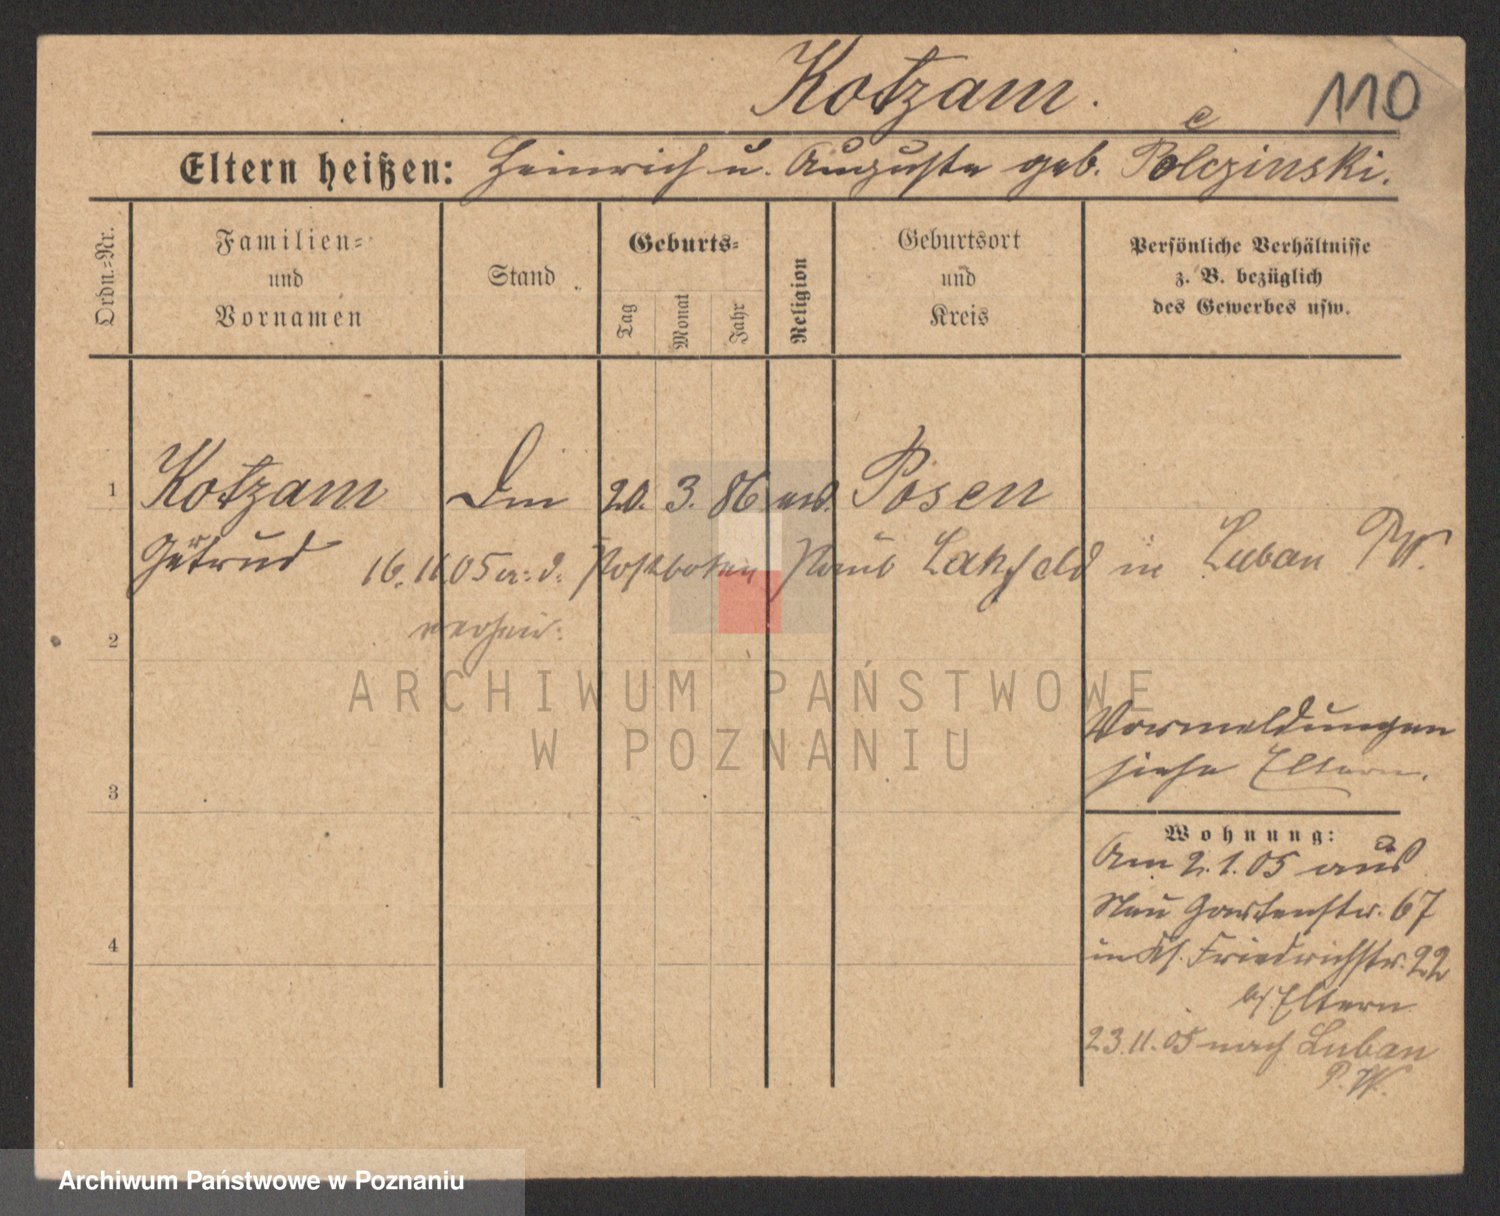 Kotzam.
110
Eltern heißen: Heinrich u. Auguste geb. Pelczinski.
Ordn.-Nr.
Familien-
und
Vornamen
Stand
Geburts-
Tag
Monat
Jahr
Religion
Geburtsort
und
Kreis
Persönliche Verhältnisse
z. B. bezüglich
des Gewerbes usw.
1 Kotzam 20. 3. 86 Posen
Gertrud 16.11.05 a. d. Postboten Paul in Luban P.W.
verheir.
2
ARCHIWUM PAŃSTWOWE
W POZNANIU
Vormeldungen
siehe Eltern.
3
Wohnung:
Am 2.1.05 aus
Neue Gartenstr. 67
in Friedrichstr. 22
b/ Eltern
4
23.11.05 nach Luban
P.W.
Archiwum Państwowe w Poznaniu